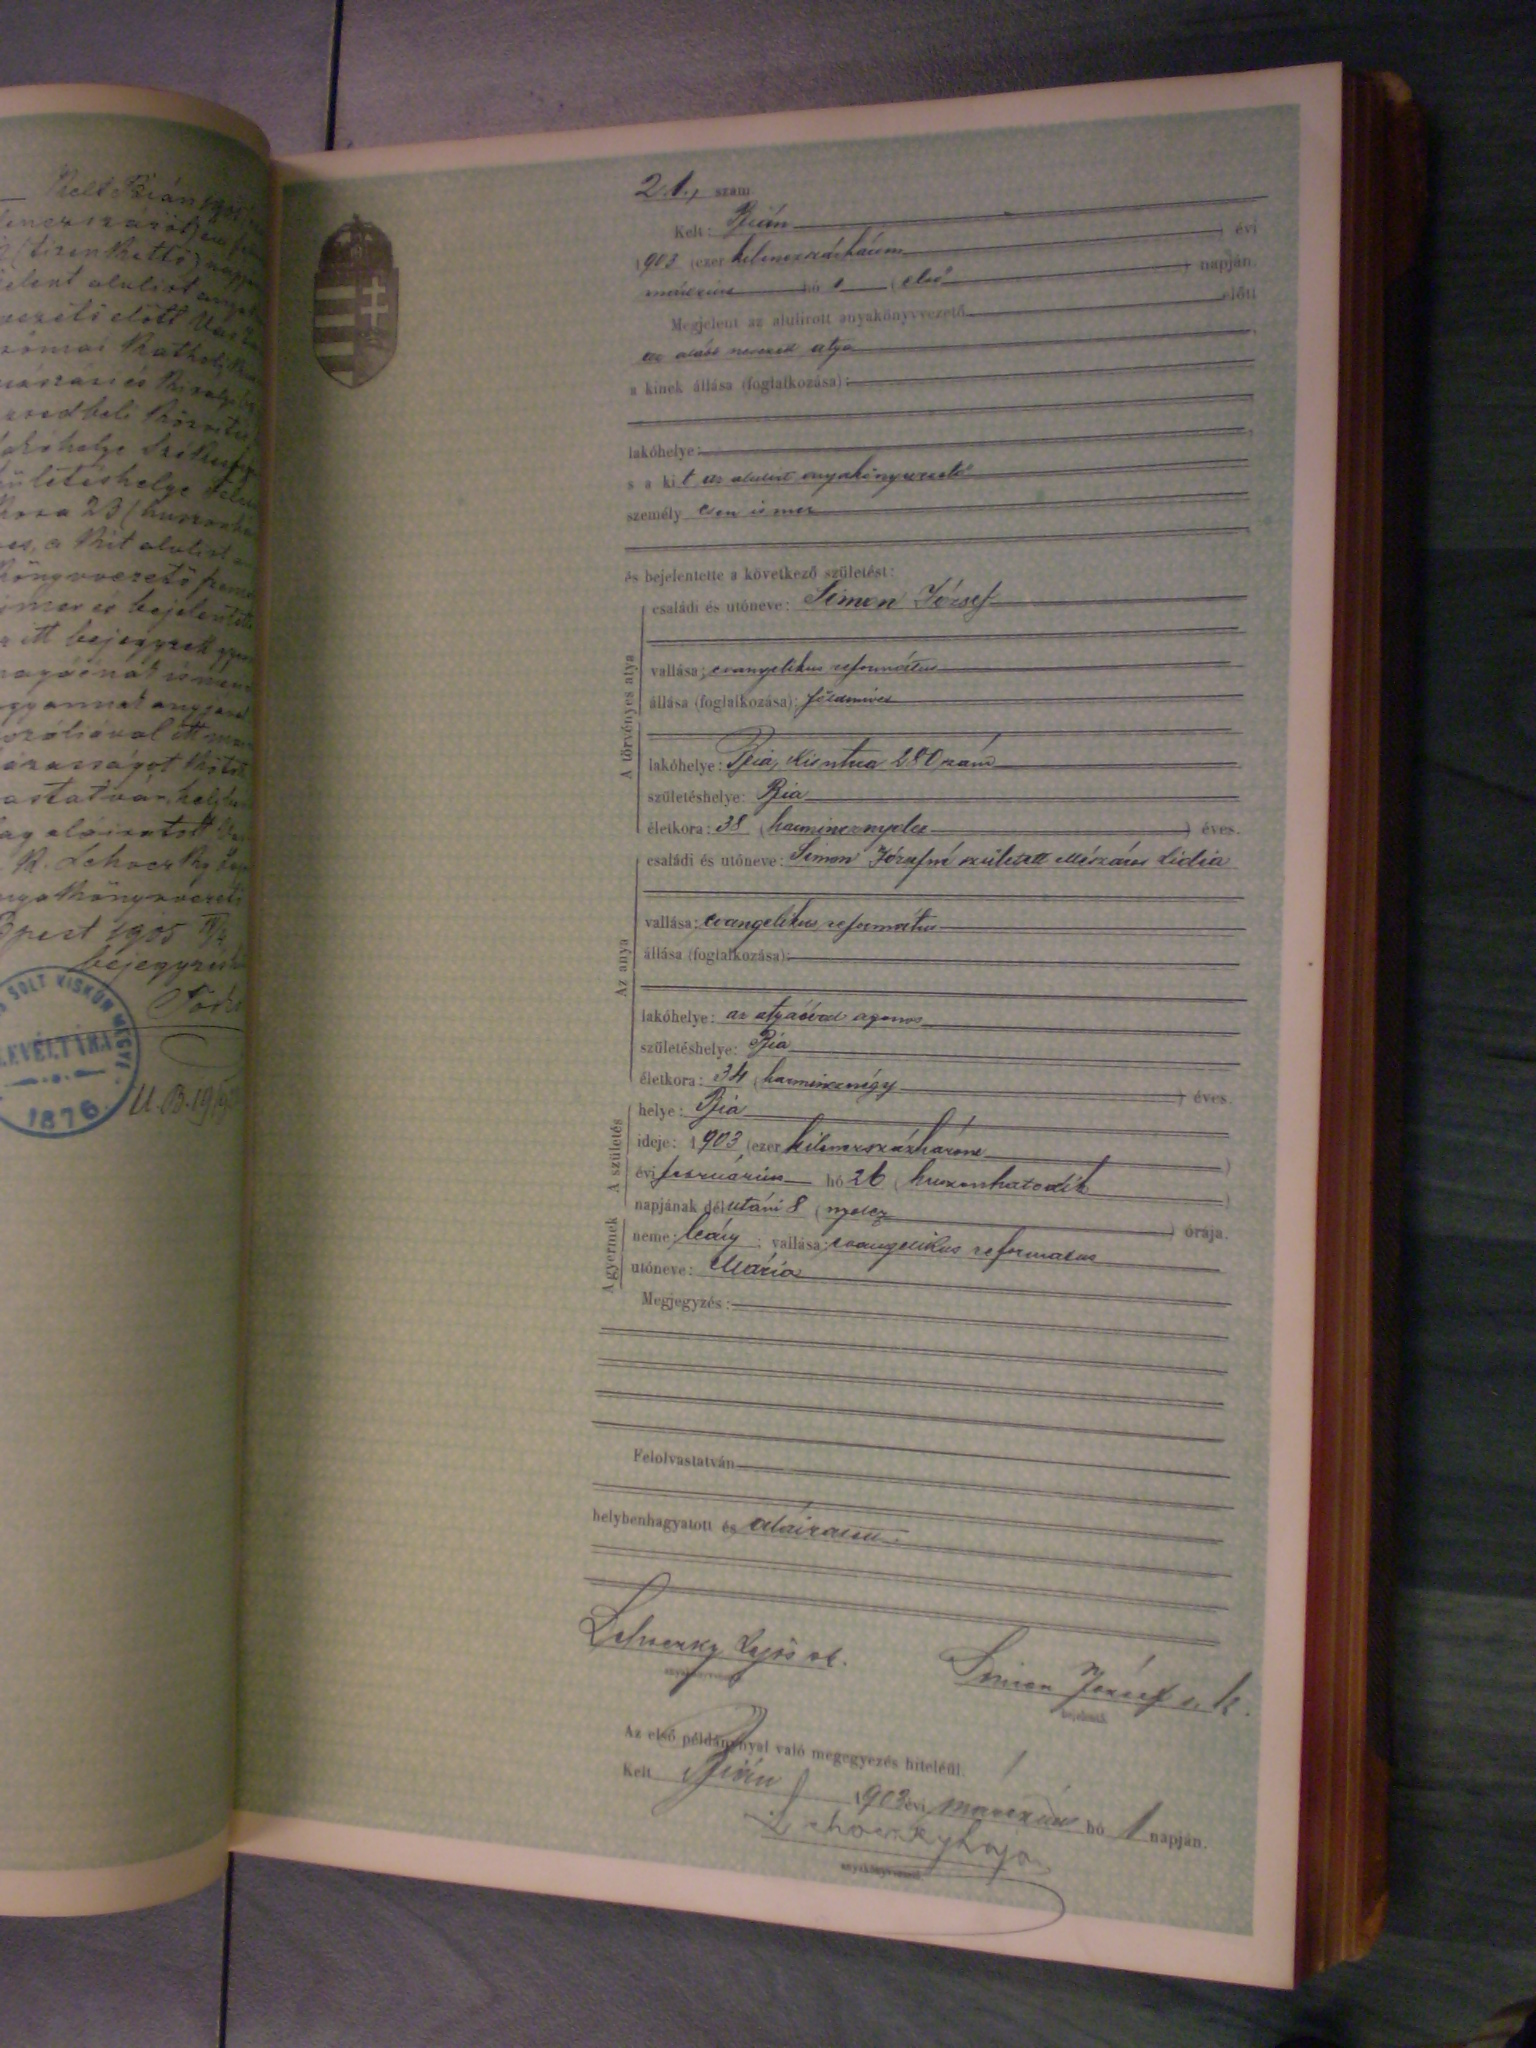 Kelt Bián 1905
(tizenkettő) napján
jelent alulírt
vezető előtt
római
lakóhelye
születéshelye
kora 23 (huszonhá
es, a kit alulírt
könyvvezető szem
ismer és bejelentette
itt bejegyzett
magáénak ismer
ugyannak anyjával
rozáliával itt
házasságot kötött
R. Lehoczky Lajos
anyakönyvvezető
Bpest 1905 IV/
bejegyzésh
SOLT KISKUN MEGYE
LEVÉLTÁRA
1876.
21., szám
Kelt: Bián
1903 (ezer kilenczszázhárom) évi
márczius hó 1 (első) napján.
Megjelent az alulirott anyakönyvvezető előtt
az alább nevezett atya
a kinek állása (foglalkozása):
lakóhelye:
s a kit az alulirt anyakönyvvezető
személyesen ismer
és bejelentette a következő születést:
A törvényes atya
családi és utóneve: Simon József
vallása: evangelikus református
állása (foglalkozása): földmíves
lakóhelye: Bia, Kis utcza 280 szám
születéshelye: Bia
életkora: 38 (harmincznyolcz) éves.
Az anya
családi és utóneve: Simon Józsefné született Mészáros Lidia
vallása: evangelikus református
állása (foglalkozása):
lakóhelye: az atyáéval azonos
születéshelye: Bia
életkora: 34 (harmincznégy) éves.
A születés
helye: Bia
ideje: 1903 (ezer kilenczszázhárom)
évi február hó 26 (huszonhatodik)
napjának délutáni 8 (nyolcz) órája.
A gyermek
neme: leány; vallása: evangelikus református
utóneve: Mária
Megjegyzés:
Felolvastatván
helybenhagyatott és aláiratott.
Lehoczky Lajos sk. Simon József s. k.
anyakönyvvezető bejelentő
Az első példánynyal való megegyezés hiteléül.
Kelt Bián 1903 évi márczius hó 1 napján.
Lehoczky Lajos
anyakönyvvezető